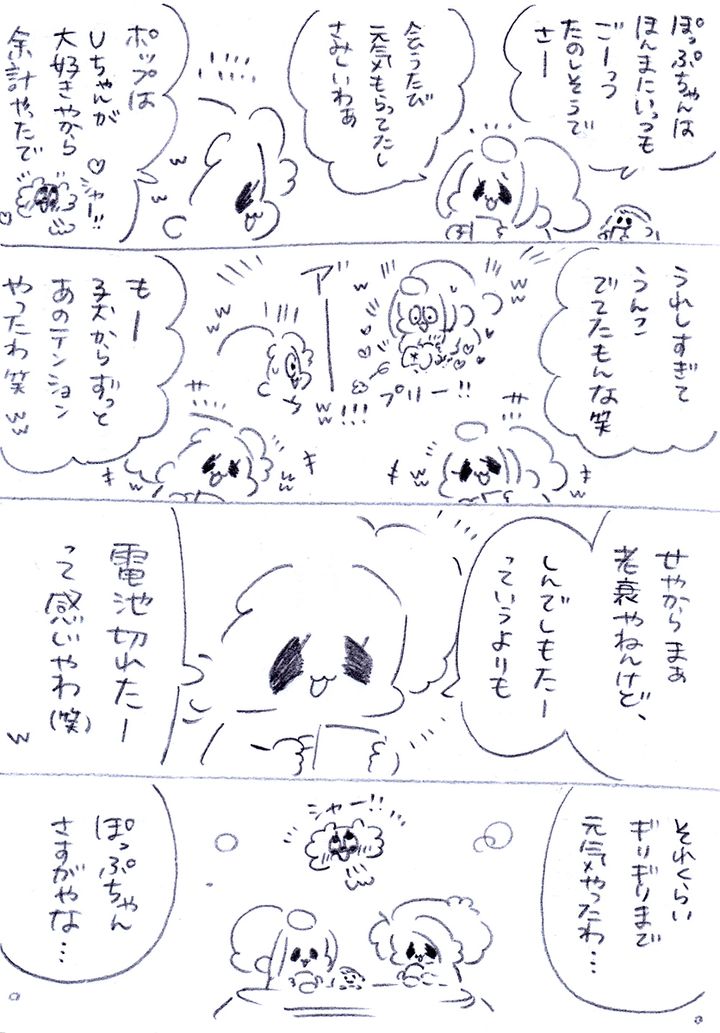 ぽっぷちゃんは
ほんまにいっつも
ごーっつ
たのしそうで
さー
会うたび
元気もらってたし
さみしいわぁ
ポップは
Uちゃんが
大好きやから
余計やったで
シャー!!
うれしすぎて
うんこ
でてたもんな笑
プリー!!
アー
!!!
もー
子犬からずっと
あのテンション
やったわ笑 ww
せやからまぁ
老衰やねんけど、
しんでしもたー
っていうよりも
電池切れたー
って感じやわ(笑)
w
それくらい
ぎりぎりまで
元気やったわ…
シャー!!
ぽっぷちゃん
さすがやな…